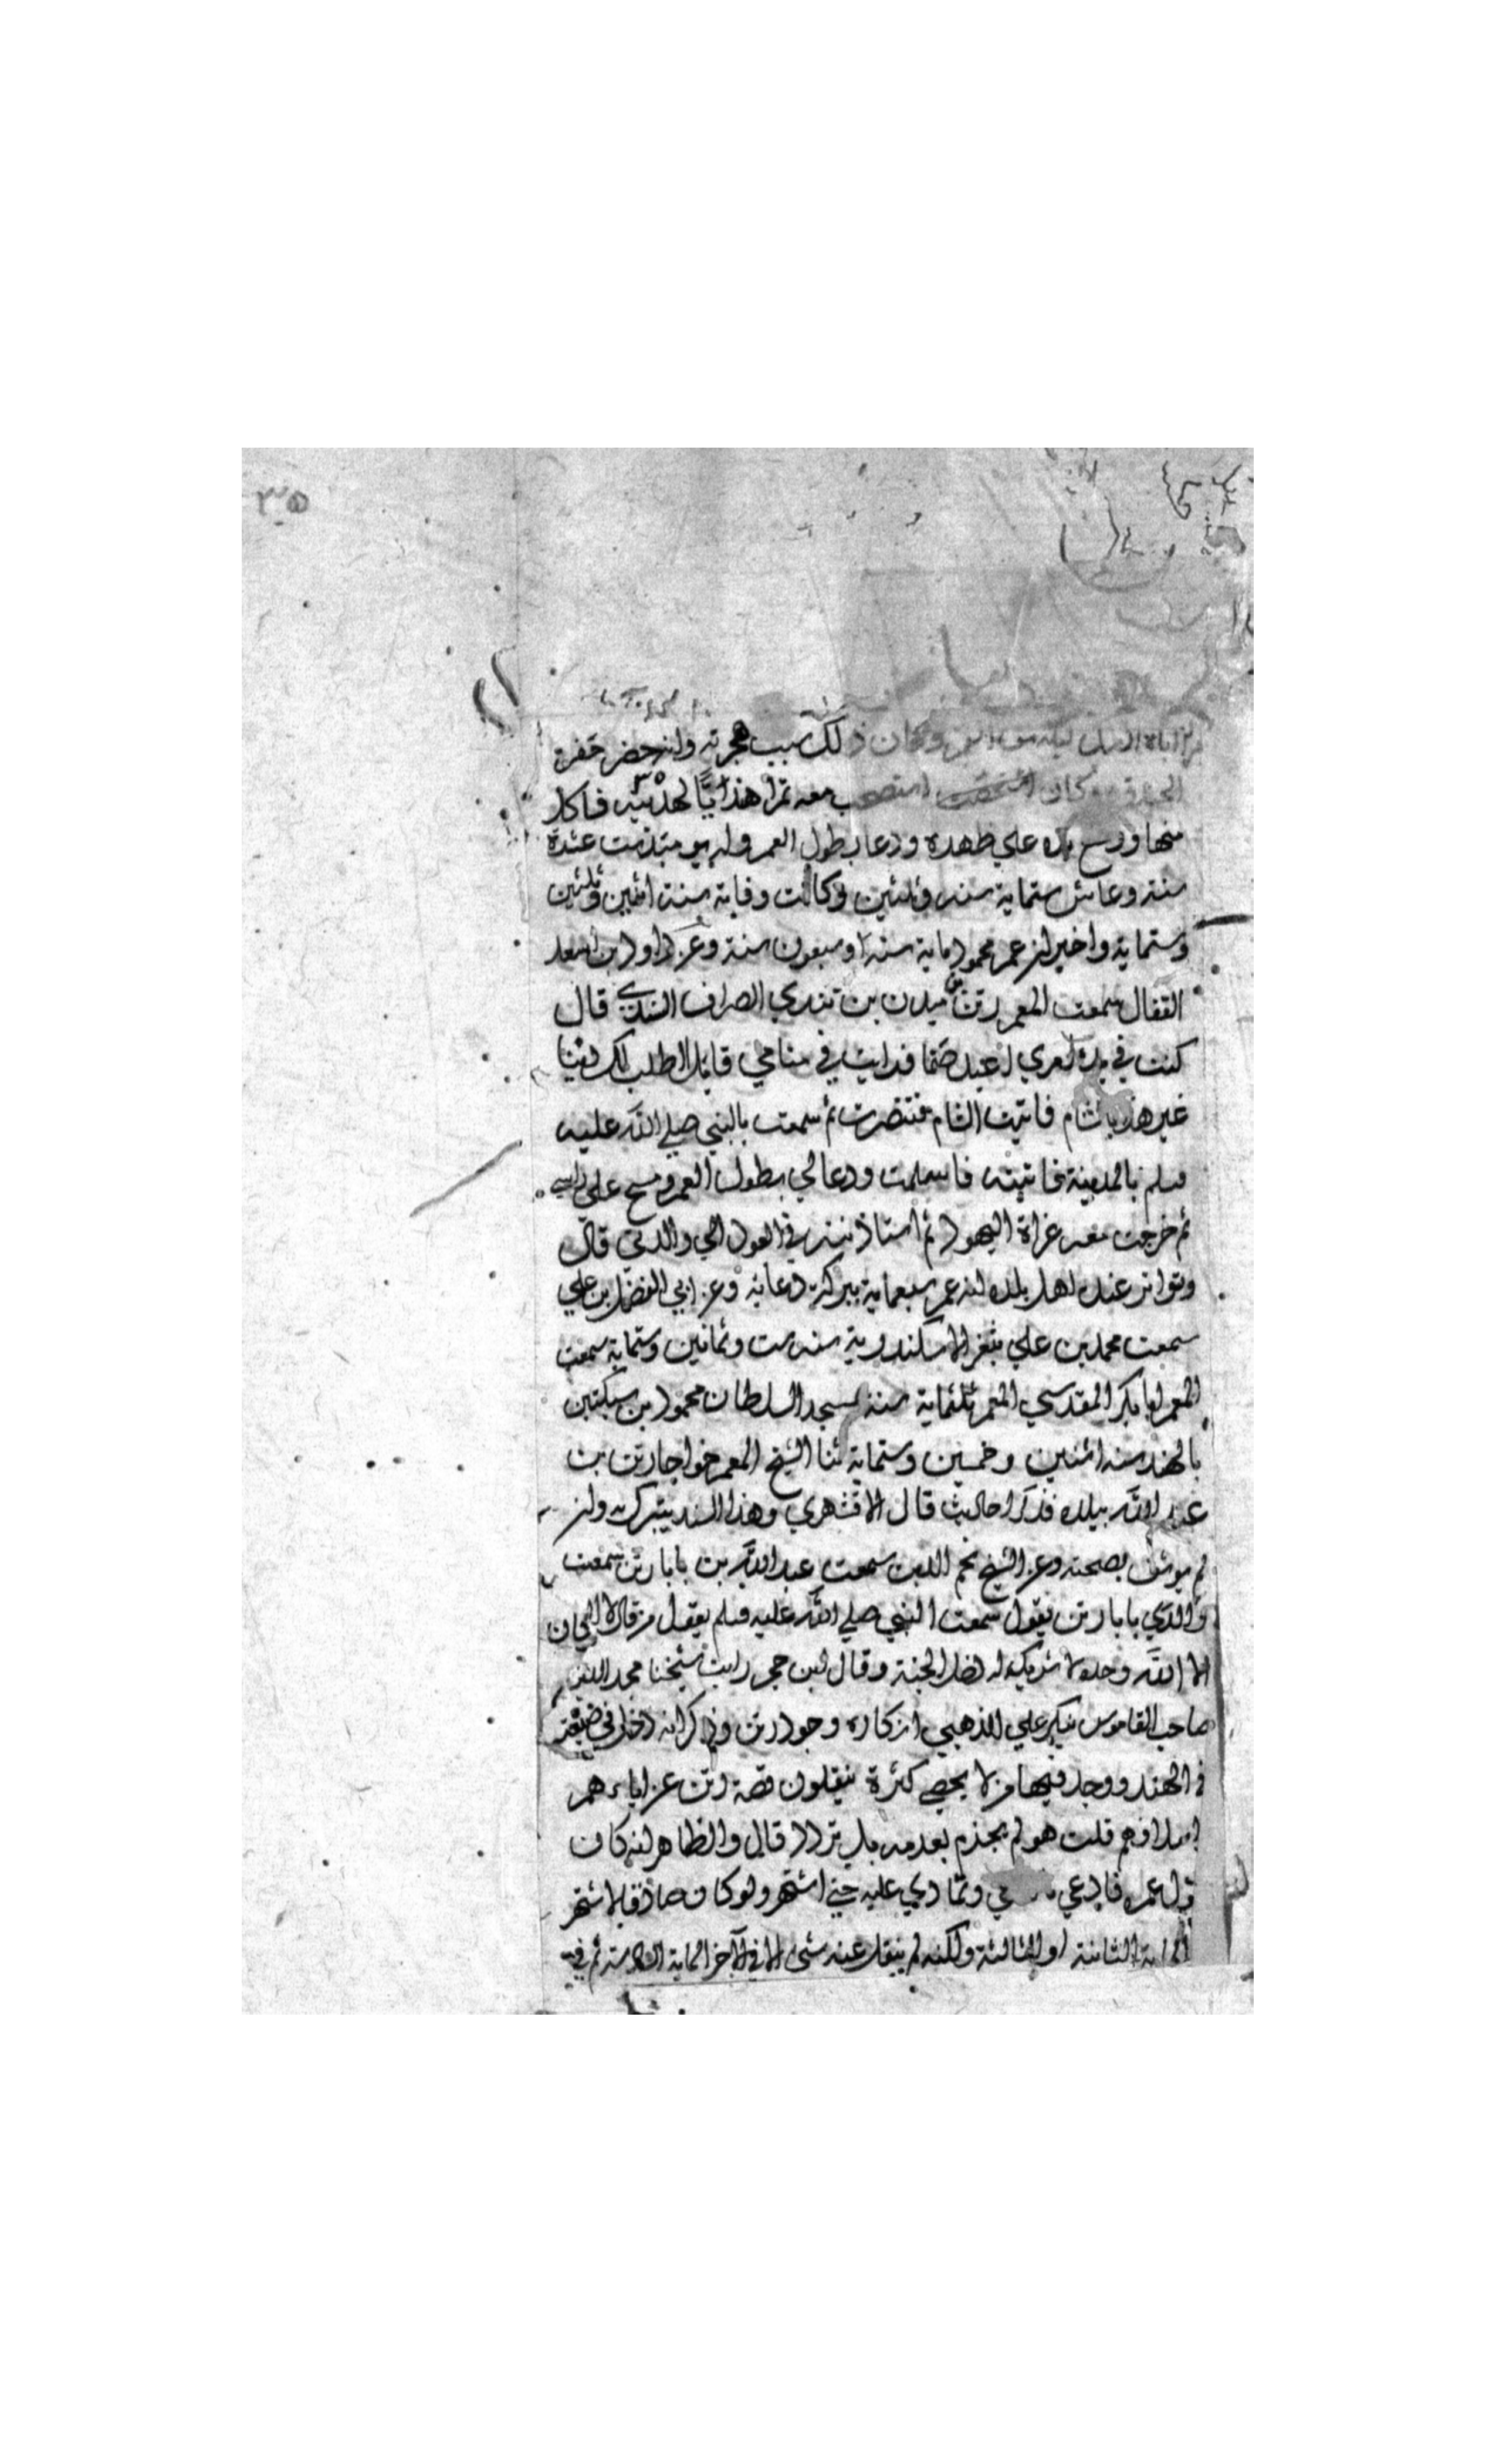 ٣٥
وكان ذلك سبب هجرته وانه حضر حفر
الخندق وكان استصحب معه تمرا هنديا لهديته فاكل
منها ووضع يده علي ظهره ودعا بطول العمر وله يومئذ ست عشرة
سنة وعاش ستماية سنة وثلثين وكانت وفاته سنة اثنين وثلثين
وستماية واخبر ان عمر محمود ماية سنة وسبعون سنة وعن داود بن اسعد
القفال سمعت المعمر رتن بن ميدن بن تندي الصراف السندي قال
كنت في بدء امري اعبد صنما فرايت في منامي قايلا اطلب لك دينا
غير هذا بالشام فاتيت الشام فتنصرت ثم سمعت بالنبي صلي الله عليه
وسلم بالمدينة فاتيته فاسلمت ودعا لي بطول العمر ومسح علي راسي
ثم خرجت معه غزاة اليهود ثم استاذنته في العود الي والدتي قال
وتواتر عند اهل بلده انه عمر سبعماية ببركة دعائه وعن ابي الفضل بن علي
سمعت محمد بن علي بثغر الاسكندرية سنة ست وثمانين وستماية سمعت
المعمر ابا بكر المقدسي المعمر ثلثماية سنة بمسجد السلطان محمود بن سبكتين
بالهند سنة اثنين وخمسين وستماية ثنا الشيخ المعمر خواجا رتن بن
عبد الله ببلده فذكر احاديث قال الاقشهري وهذا السند يتبرك به وان
لم يوثق بصحته وعن الشيخ نجم الدين سمعت عبد الله بن بابا رتن سمعت
والدي بابا رتن يقول سمعت النبي صلي الله عليه وسلم يقول من قال
الا الله وحده لا شريك له دخل الجنة وقال ابن حجر رايت شيخنا مجد الدين
صاحب القاموس ينكر علي الذهبي انكاره وجود رتن وذكر انه دخل في ضيعته
في الهند ووجد فيها من لا يحصي كثرة ينقلون قصة رتن عن اباءهم
اسلافهم قلت هو لم يجزم بعدمه بل تردد قال والظاهر انه كان
طال عمره فادعي ما ادعي وتمادي عليه حتي اشتهر ولو كان صادقا لاشتهر
الماية الثانية او الثالثة ولكنه لم ينقل عنه شئ الا في اخر الماية السادسة ثم في